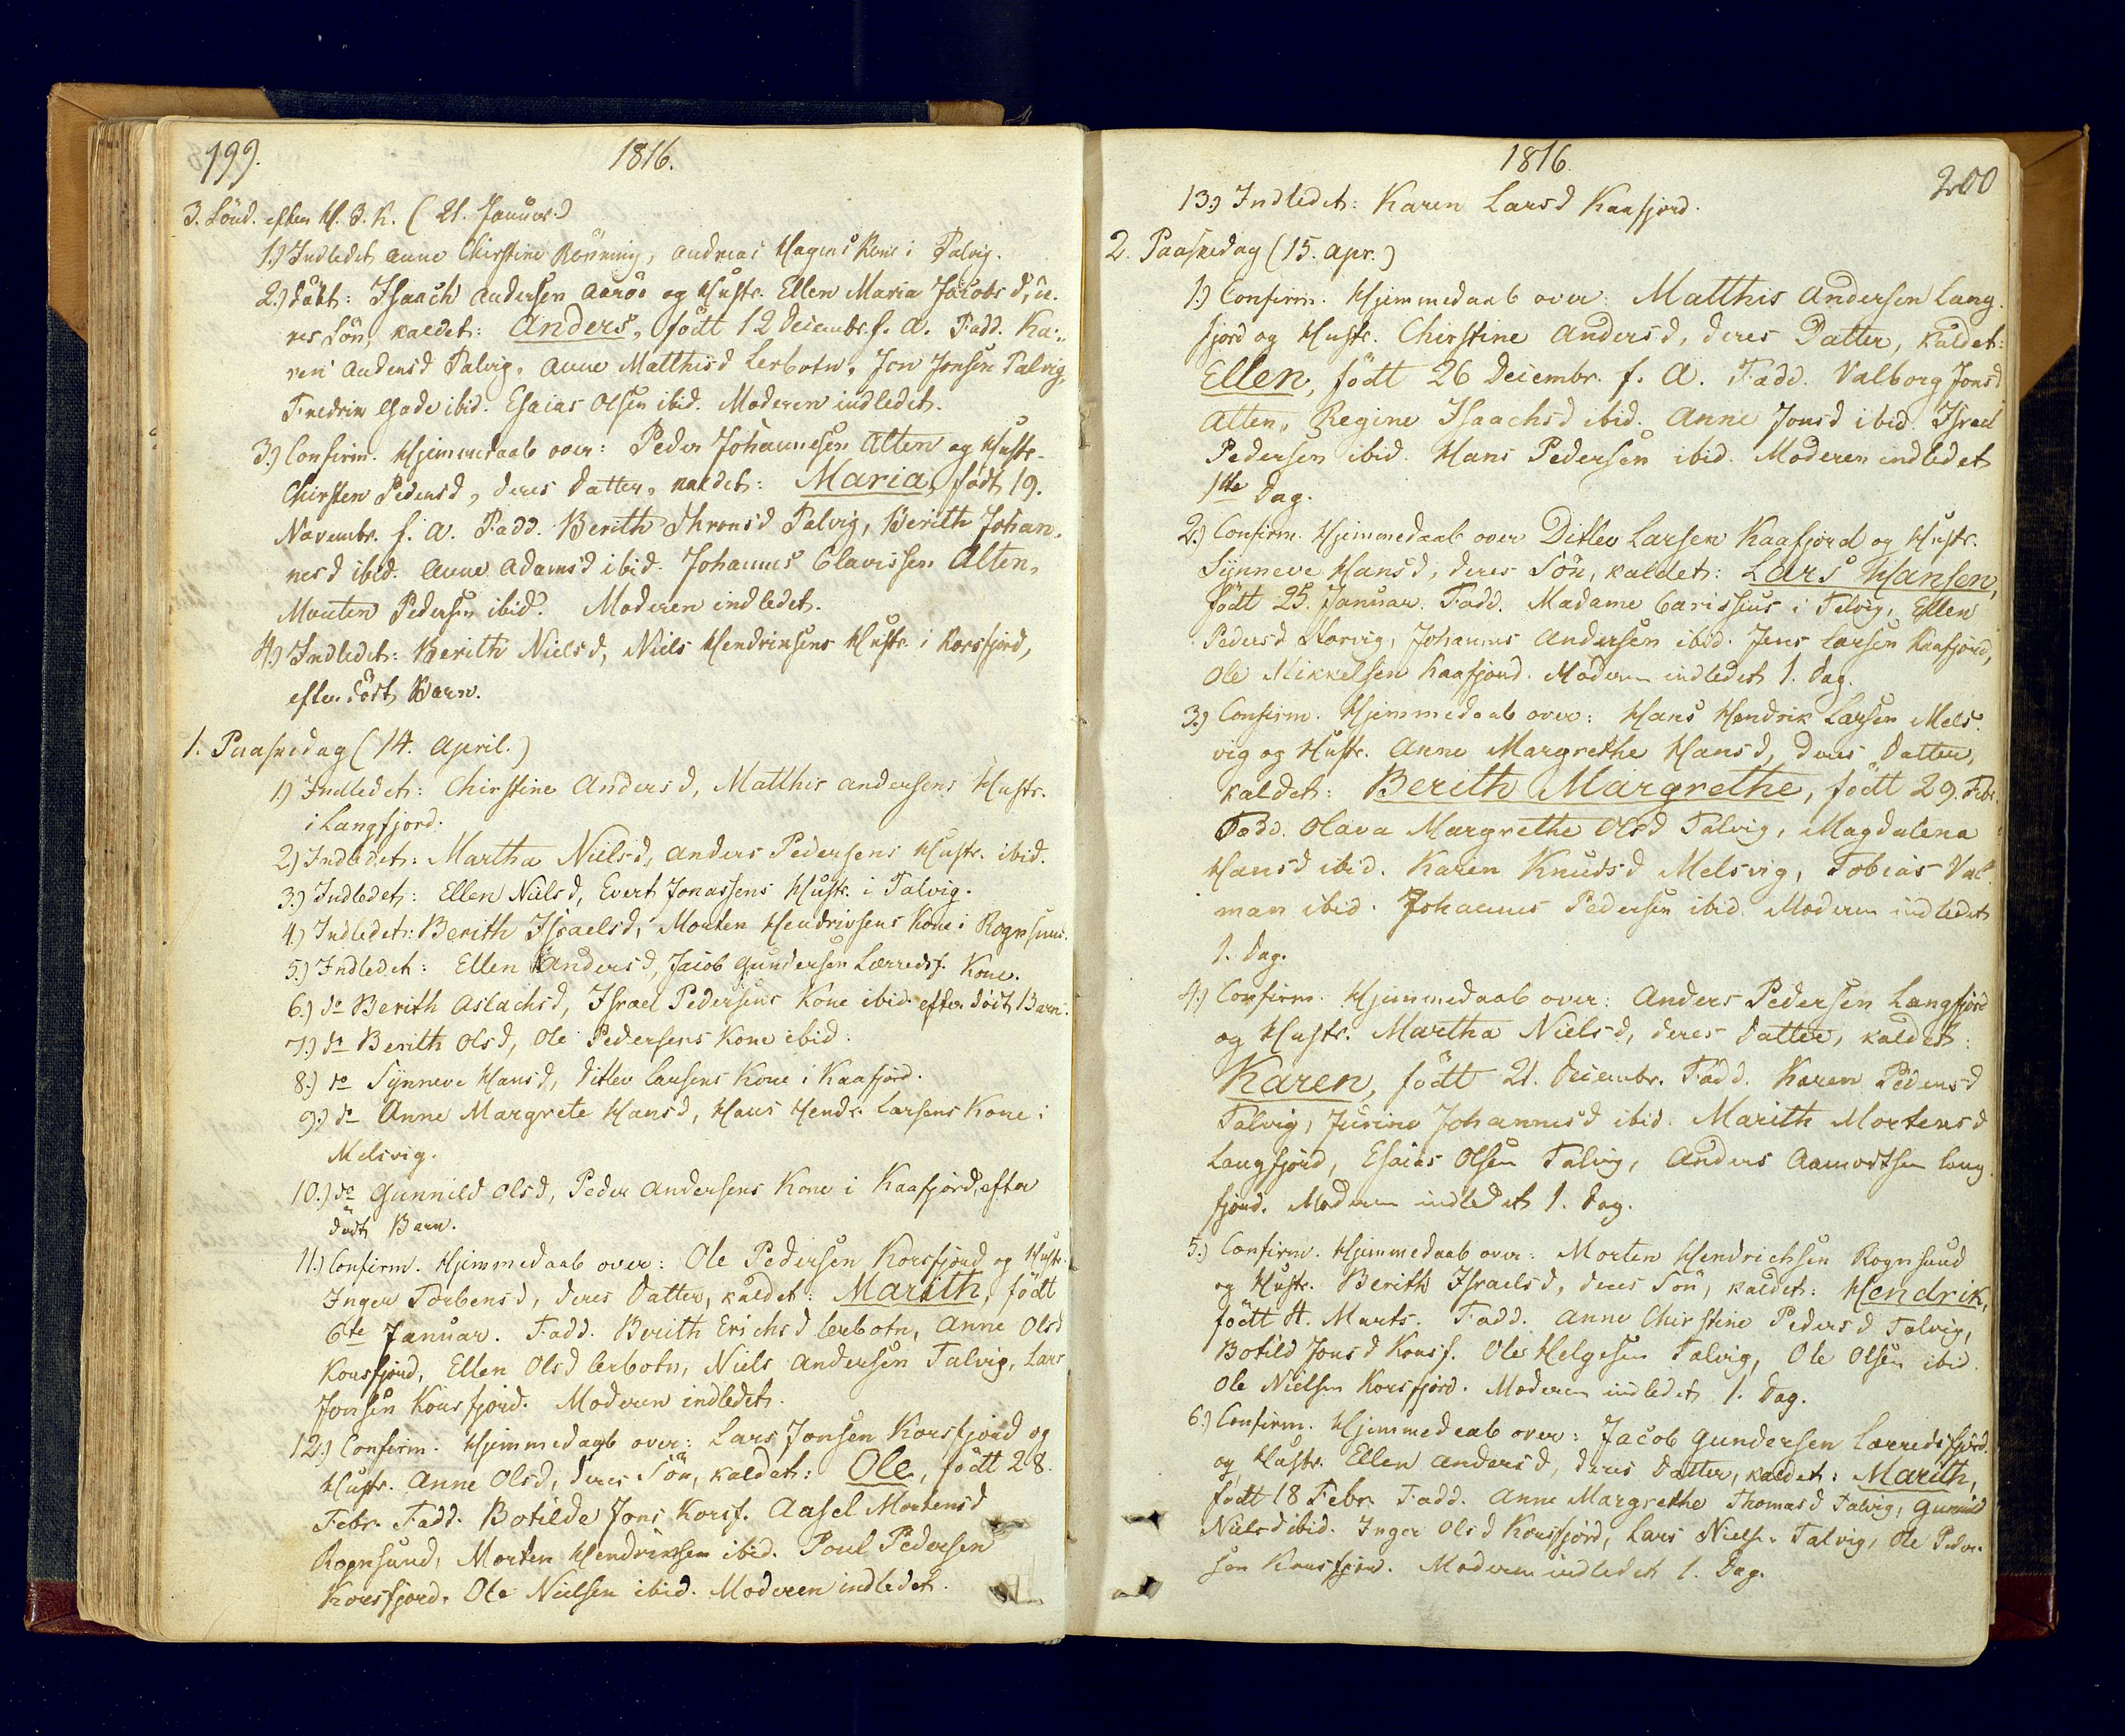 199.
1816.
3. Sönd. efter H. 3. K. (21. Januar.)
1.) Indledet Anne Chirstine Rönning, Andreas Hagens Kone i Talvig.
2.) Döbt: Isaach Andersen Aaröe og Hustr. Ellen Maria Jacobsd, de-
res Sön, kaldet: Anders, födt 12 Decembr. f. A. Fadd. Ka-
ren Andersd Talvig, Anne Matthisd Lerbotn, Jon Jonsen Talvig,
Fredrik Gade ibid. Esaias Olsen ibid. Moderen indledet.
3.) Confirm. Hjemmedaab over: Peder Johannesen Alten og Hustr.
Chirsten Pedersd, deres Datter, kaldet: Maria, födt 19.
Novembr. f. A. Fadd. Berith Thronsd Talvig, Berith Johan-
nesd ibid. Anne Adamsd ibid. Johannes Clavissen Alten,
Morten Pedersen ibid. Moderen indledet.
4.) Indledet: Berith Nielsd, Niels Hendriksens Hustr. i Korsfjord,
efter dödt Barn.
1. Paaskedag (14. April.)
1.) Indledet: Chirstine Andersd, Matthis Andersens Hustr.
i Langfjord.
2.) Indledet: Martha Nielsd, Anders Pedersens Hustr. ibid.
3.) Indledet: Ellen Nielsd, Evert Jonassens Hustr. i Talvig.
4.) Indledet: Berith Israelsd, Morten Hendriksens Kone i Rognsund.
5.) Indledet: Ellen Andersd, Jacob Gundersen Lerredsf. Kone.
6.) do Berith Aslachsd, Israel Pedersens Kone ibid. efter dödt Barn.
7.) do Berith Olsd, Ole Pedersens Kone ibid.
8.) do Synneve Hansd, Ditlev Larsens Kone i Kaafjord.
9.) do Anne Margrete Hansd, Hans Hendr. Larsens Kone i
Melsvig.
10.) do Gunnild Olsd, Peder Andersens Kone i Kaafjord, efter
dödt Barn.
11.) Confirm. Hjemmedaab over: Ole Pedersen Korsfjord og Hustr.
Inger Torbensd, deres Datter, kaldet: Marith, födt
6te Januar. Fadd. Berith Erichsd Lerbotn, Anne Olsd
Korsfjord, Ellen Olsd Lerbotn, Niels Andersen Talvig, Lars
Jonsen Korsfjord. Moderen indledet.
12.) Confirm. Hjemmedaab over: Lars Jonsen Korsfjord og
Hustr. Anne Olsd, deres Sön, kaldet: Ole, födt 28.
Febr. Fadd. Botilde Jons Korsf. Aasel Mortensd
Rognsund, Morten Hendriksen ibid. Poul Pedersen
Korsfjord. Ole Nielsen ibid. Moderen indledet.
1816.
200
13.) Indledet: Karen Larsd Kaafjord.
2. Paaskedag (15. Apr.)
1.) Confirm. Hjemmedaab over: Matthis Andersen Lang-
fjord og Hustr. Chirstine Andersd, deres Datter, kaldet:
Ellen, födt 26 Decembr. f. A. Fadd. Valborg Jonsd
Alten, Regine Isaachsd ibid. Anne Jonsd ibid. Israel
Pedersen ibid. Hans Pedersen ibid. Moderen indledet
1ste Dag.
2.) Confirm. Hjemmedaab over Ditlev Larsen Kaafjord og Hustr.
Synneve Hansd, deres Sön, kaldet: Lars Hansen,
födt 25. Januar. Fadd. Madame Carissius i Talvig, Ellen
Pedersd Storvig, Johannes Andersen ibid. Jens Larsen Kaafjord,
Ole Mikkelsen Kaafjord. Moderen indledet 1. Dag.
3.) Confirm. Hjemmedaab over: Hans Hendrik Larsen Mels-
vig og Hustr. Anne Margrethe Hansd, deres Datter,
kaldet: Berith Margrethe, födt 29. Febr.
Fadd. Olava Margrethe Olsd Talvig, Magdalena
Hansd ibid. Karen Knudsd Melsvig, Tobias Val-
man ibid. Johannes Pedersen ibid. Moderen indledet
1. Dag.
4.) Confirm. Hjemmedaab over: Anders Pedersen Langfjord
og Hustr. Martha Nielsd, deres Datter, kaldet:
Karen, födt 21. Decembr. Fadd. Karen Pedersd
Talvig, Jurine Johannesd ibid. Marith Mortensd
Langfjord, Esaias Olsen Talvig, Anders Aamodtsen Lang-
fjord. Moderen indledet 1. Dag.
5.) Confirm. Hjemmedaab over: Morten Hendrichsen Rognsund
og Hustr. Berith Israelsd, deres Sön, kaldet: Hendrik,
födt 4. Marts. Fadd. Anne Chirstine Pedersd Talvig,
Botild Jonsd Korsf. Ole Helgesen Talvig, Ole Olsen ibid.
Ole Nielsen Korsfjord. Moderen indledet 1. Dag.
6.) Confirm. Hjemmedaab over: Jacob Gundersen Lerredsfjord
og Hustr. Ellen Andersd, deres Datter, kaldet: Marith,
födt 18 Febr. Fadd. Anne Margrethe Thomasd Talvig, Gunnild
Nielsd ibid. Inger Olsd Korsfjord, Lars Nielsen Talvig, Ole Peder-
sen Korsfjord. Moderen indledet 1. Dag.